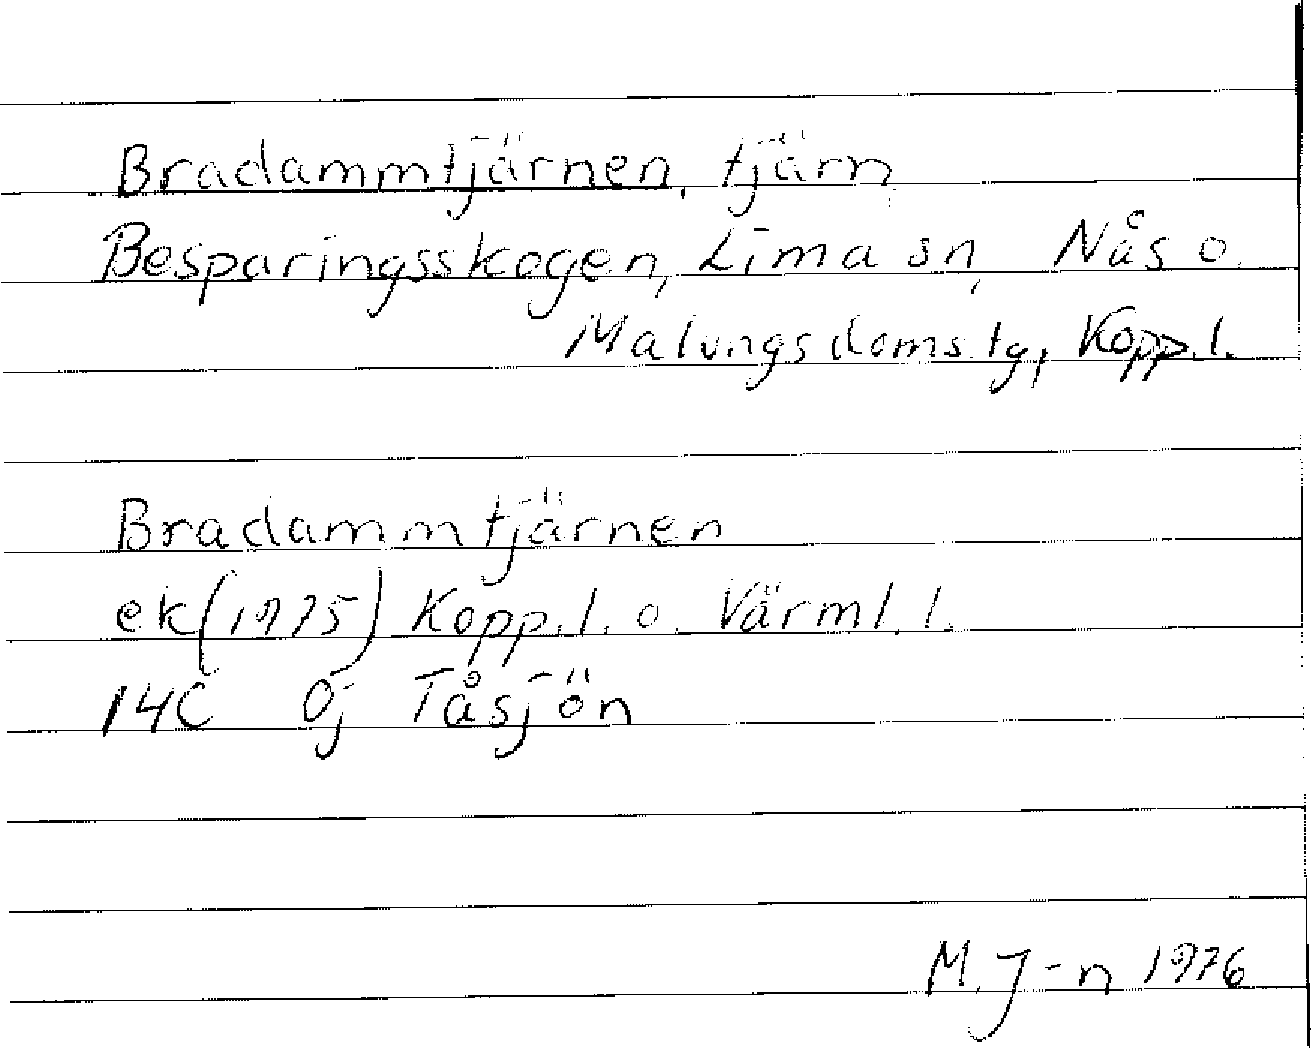 Bradammtjärnen, tjärn,
Besparingsskogen, Lima sn, Nås o.
Malungs doms. tg, Kopp. l.
Bradammtjärnen
ek (1975) Kopp. l. o. Värml. l.
14C 0j Tåsjön
M. J-n 1976